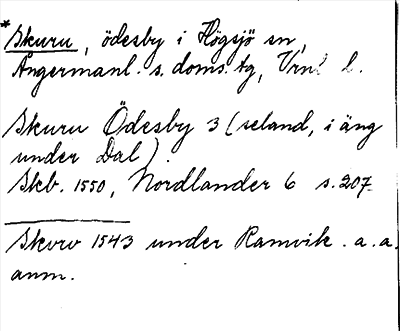 *Skuru, ödesby i Högsjö sn,
Ångermanl. s. doms. tg, Vrnl l.
Skuru Ödesby 3 (seland, i äng
under Dal).
Skb. 1550, Nordlander 6 s. 207.
Skvrv 1543 under Ramvik. a.a.
anm.